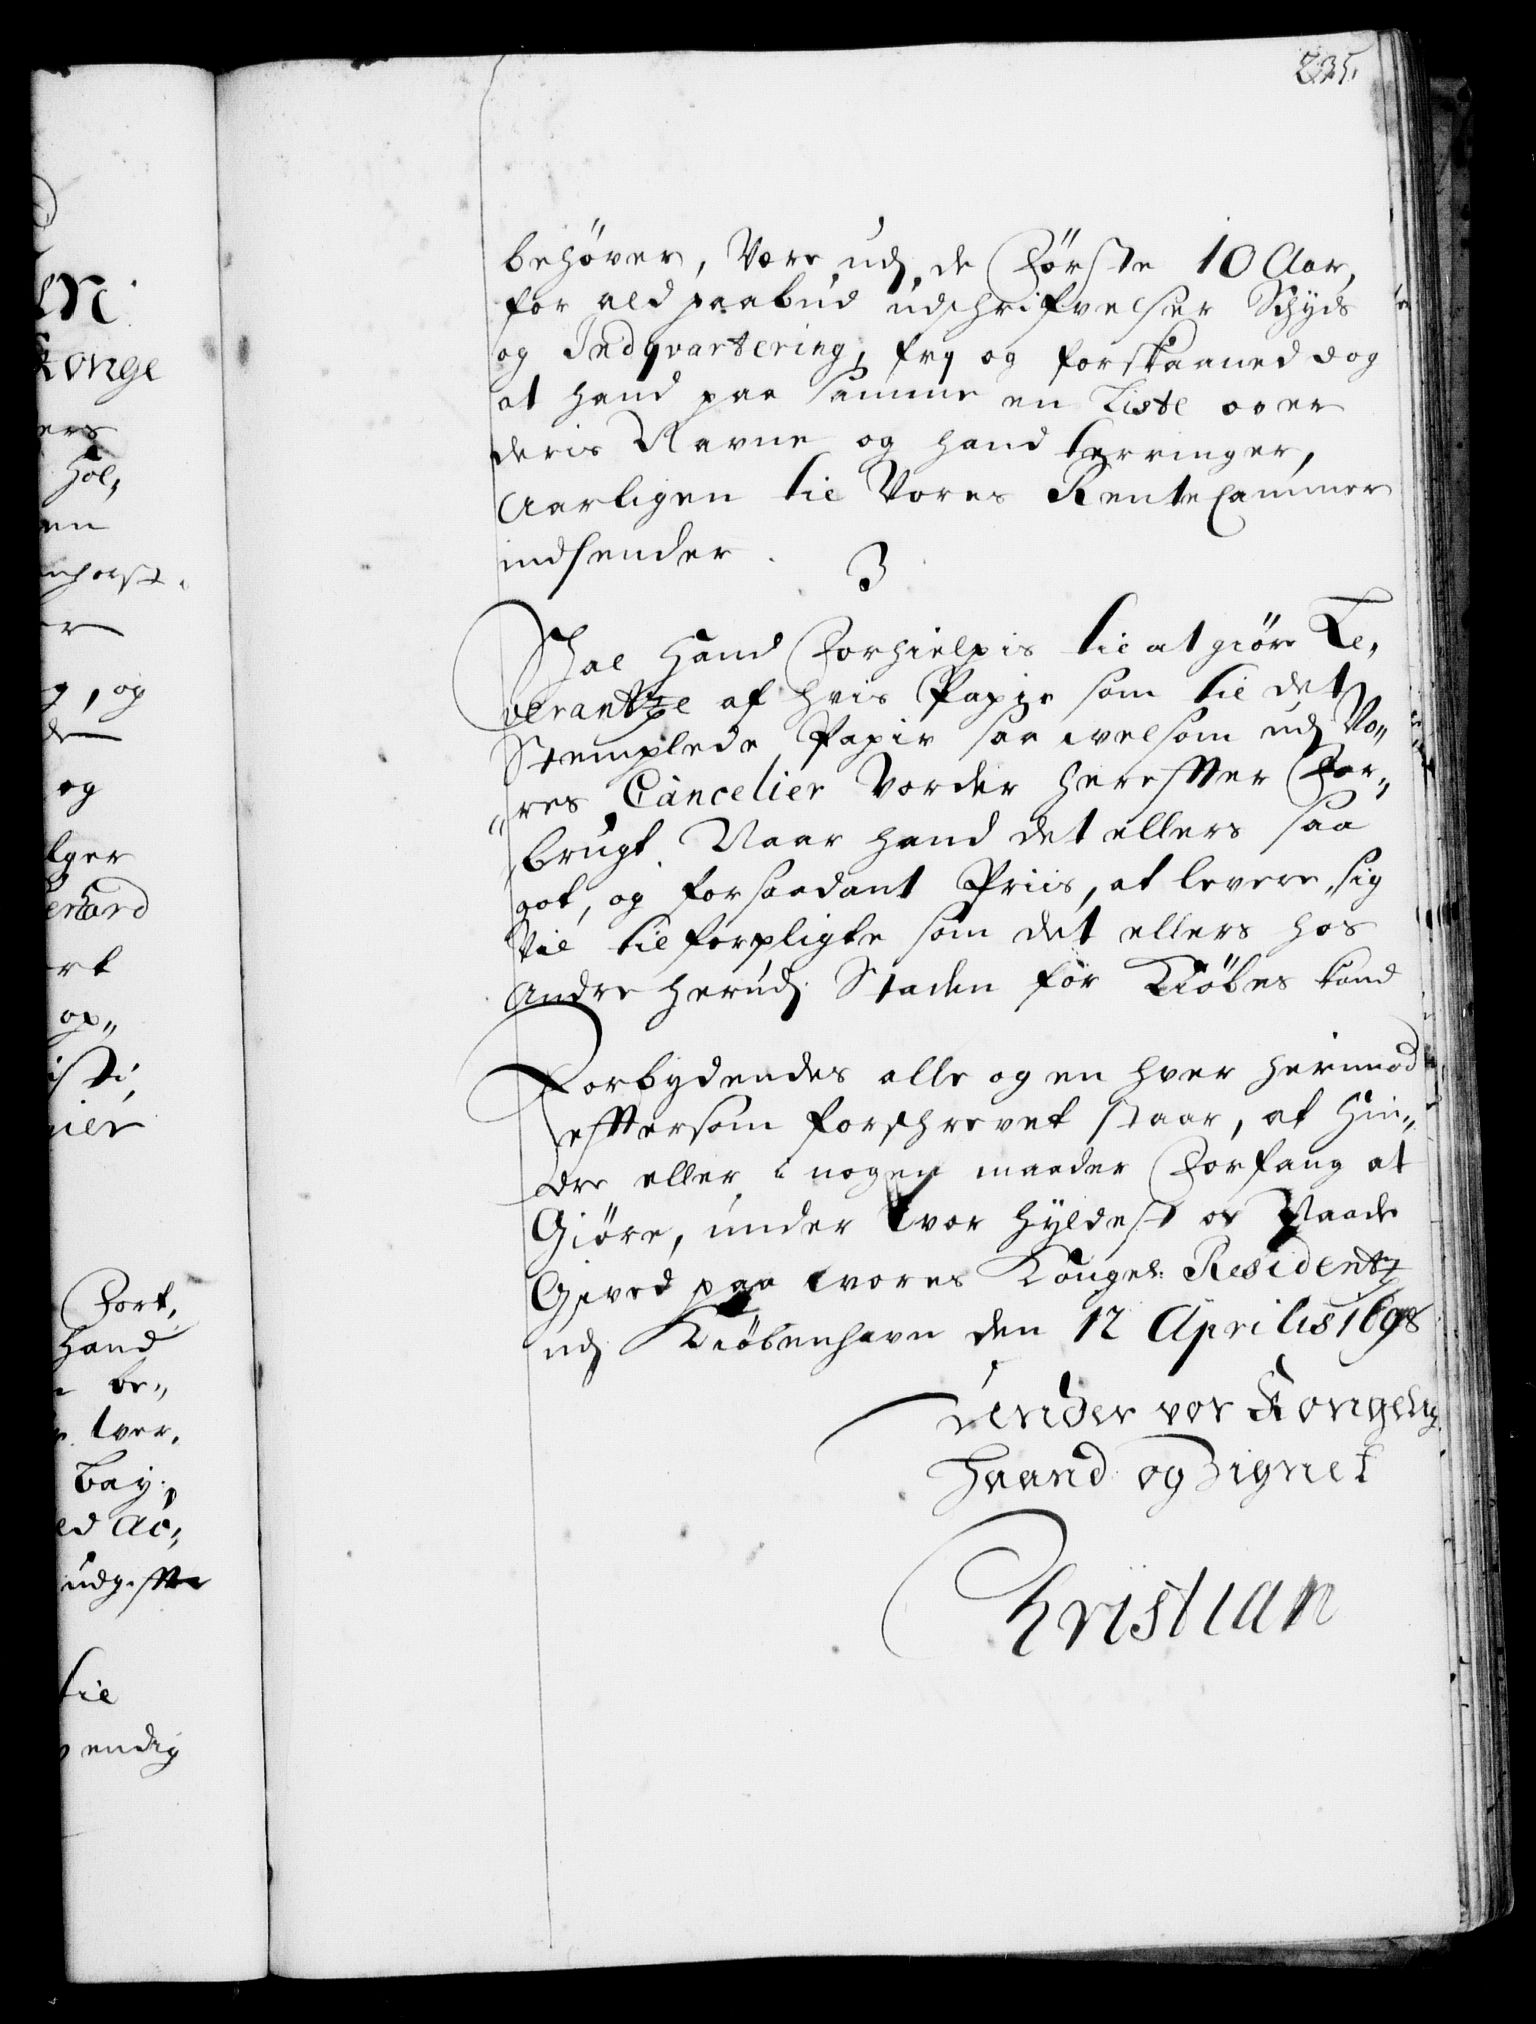 235.
behöver, Være udj de Förste 10 Aar,
for ald paabud udschrifvelser Schyds
og Indqvartering, fry og forskaaned dog
at hand paa samme en Liste over
deris Navne og handterringer,
Aarligen til Vores RenteCammer
indsender.
3
Schal Hand Forhielpis til at giöre Le,
verantze af hvis Papir som til det
Stemplede Papir saa velsom udj Vo„
„res Cancelier Vorder hereffter For„
brugt. Naar hand det ellers saa
got, og forsaadant Priis, at levere, sig
Vil tilforpligte som det ellers hos
Andre herudj Staden for Kiöbes kand
Forbydendes alle og en hver herimod
efftersom forschrevet staar, at Hin„
dre eller i nogen maader Forfang at
Giöre, under vor Hyldest og Naade
Gived paa vores Kongel: Residentz
udj Kiöbenhavn den 12 Aprilis 1698
Under vor Kongelig
Haand og Zignet
Christian
en
Konge
ers
Hol,
en
nhorst.
r
g, og
og
lger
erhard
rt
op„
isti,
ier
Fort,
Hand
be„
ver,
Bay„
ed Ac„
udgiffte
til
vendig